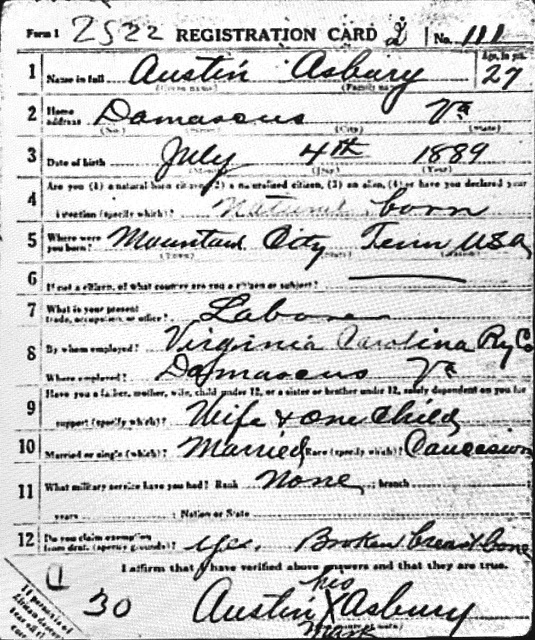 Form 1 2522 REGISTRATION CARD 2 No. 111
1 Name in full Austin Asbury Age, in yrs. 27
(Given name) (Family name)
2 Home address Damascus Va
(No.) (Street) (City) (State)
3 Date of birth July 4th 1889
(Month) (Day) (Year)
Are you (1) a natural-born citizen, (2) a naturalized citizen, (3) an alien, (4) or have you declared your
4 intention (specify which)? Natural born
5 Where were you born? Mountain City Tenn USA
(Town) (State) (Nation)
6 If not a citizen, of what country are you a citizen or subject?
7 What is your present trade, occupation, or office? Laborer
8 By whom employed? Virginia Carolina Ry Co
Where employed? Damascus Va
Have you a father, mother, wife, child under 12, or a sister or brother under 12, solely dependent on you for
9 support (specify which)? Wife & one child
10 Married or single (which)? Married Race (specify which)? Caucesion
11 What military service have you had? Rank None ; branch
years ; Nation or State
12 Do you claim exemption from draft (specify grounds)? yes. Broken breast bone
I affirm that I have verified above answers and that they are true.
his
30 Austin X Asbury
mark